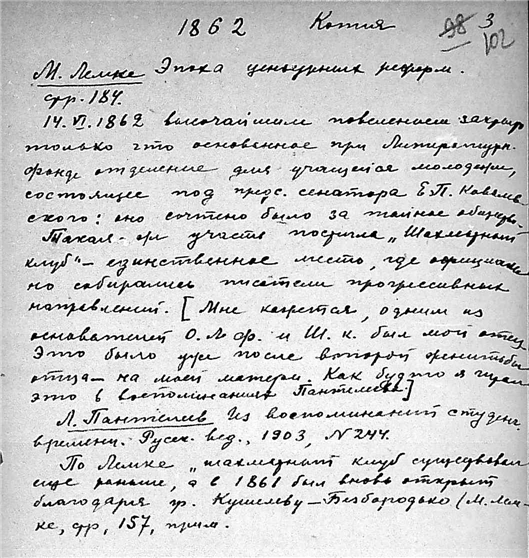 1862 Копия 98 3
102
М. Лемке Эпоха цензурных реформ.
стр. 184.
14.VI.1862 высочайшим повелением закрыто
только что основанное при Литературн.
фонде отделение для учащейся молодежи,
состоящее под предс. сенатора Е.П. Ковалев-
ского: оно сочтено было за тайное общество.
Такая же участь постигла „Шахматный
клуб" – единственное место, где официаль-
но собирались писатели прогрессивных
направлений. [Мне кажется, одним из
основателей О.Л.Ф. и Ш.к. был мой отец.
Это было уже после второй женитьбы
отца – на моей матери. Как будто я читал
это в воспоминаниях Пантелеева.]
Л. Пантелеев Из воспоминаний студенч.
времени. Русск. вед., 1903, № 244.
По Лемке „шахматный клуб существовал
еще раньше, а в 1861 был вновь открыт
благодаря гр. Кушелеву–Безбородько (М. Лем-
ке, стр, 157, прим.